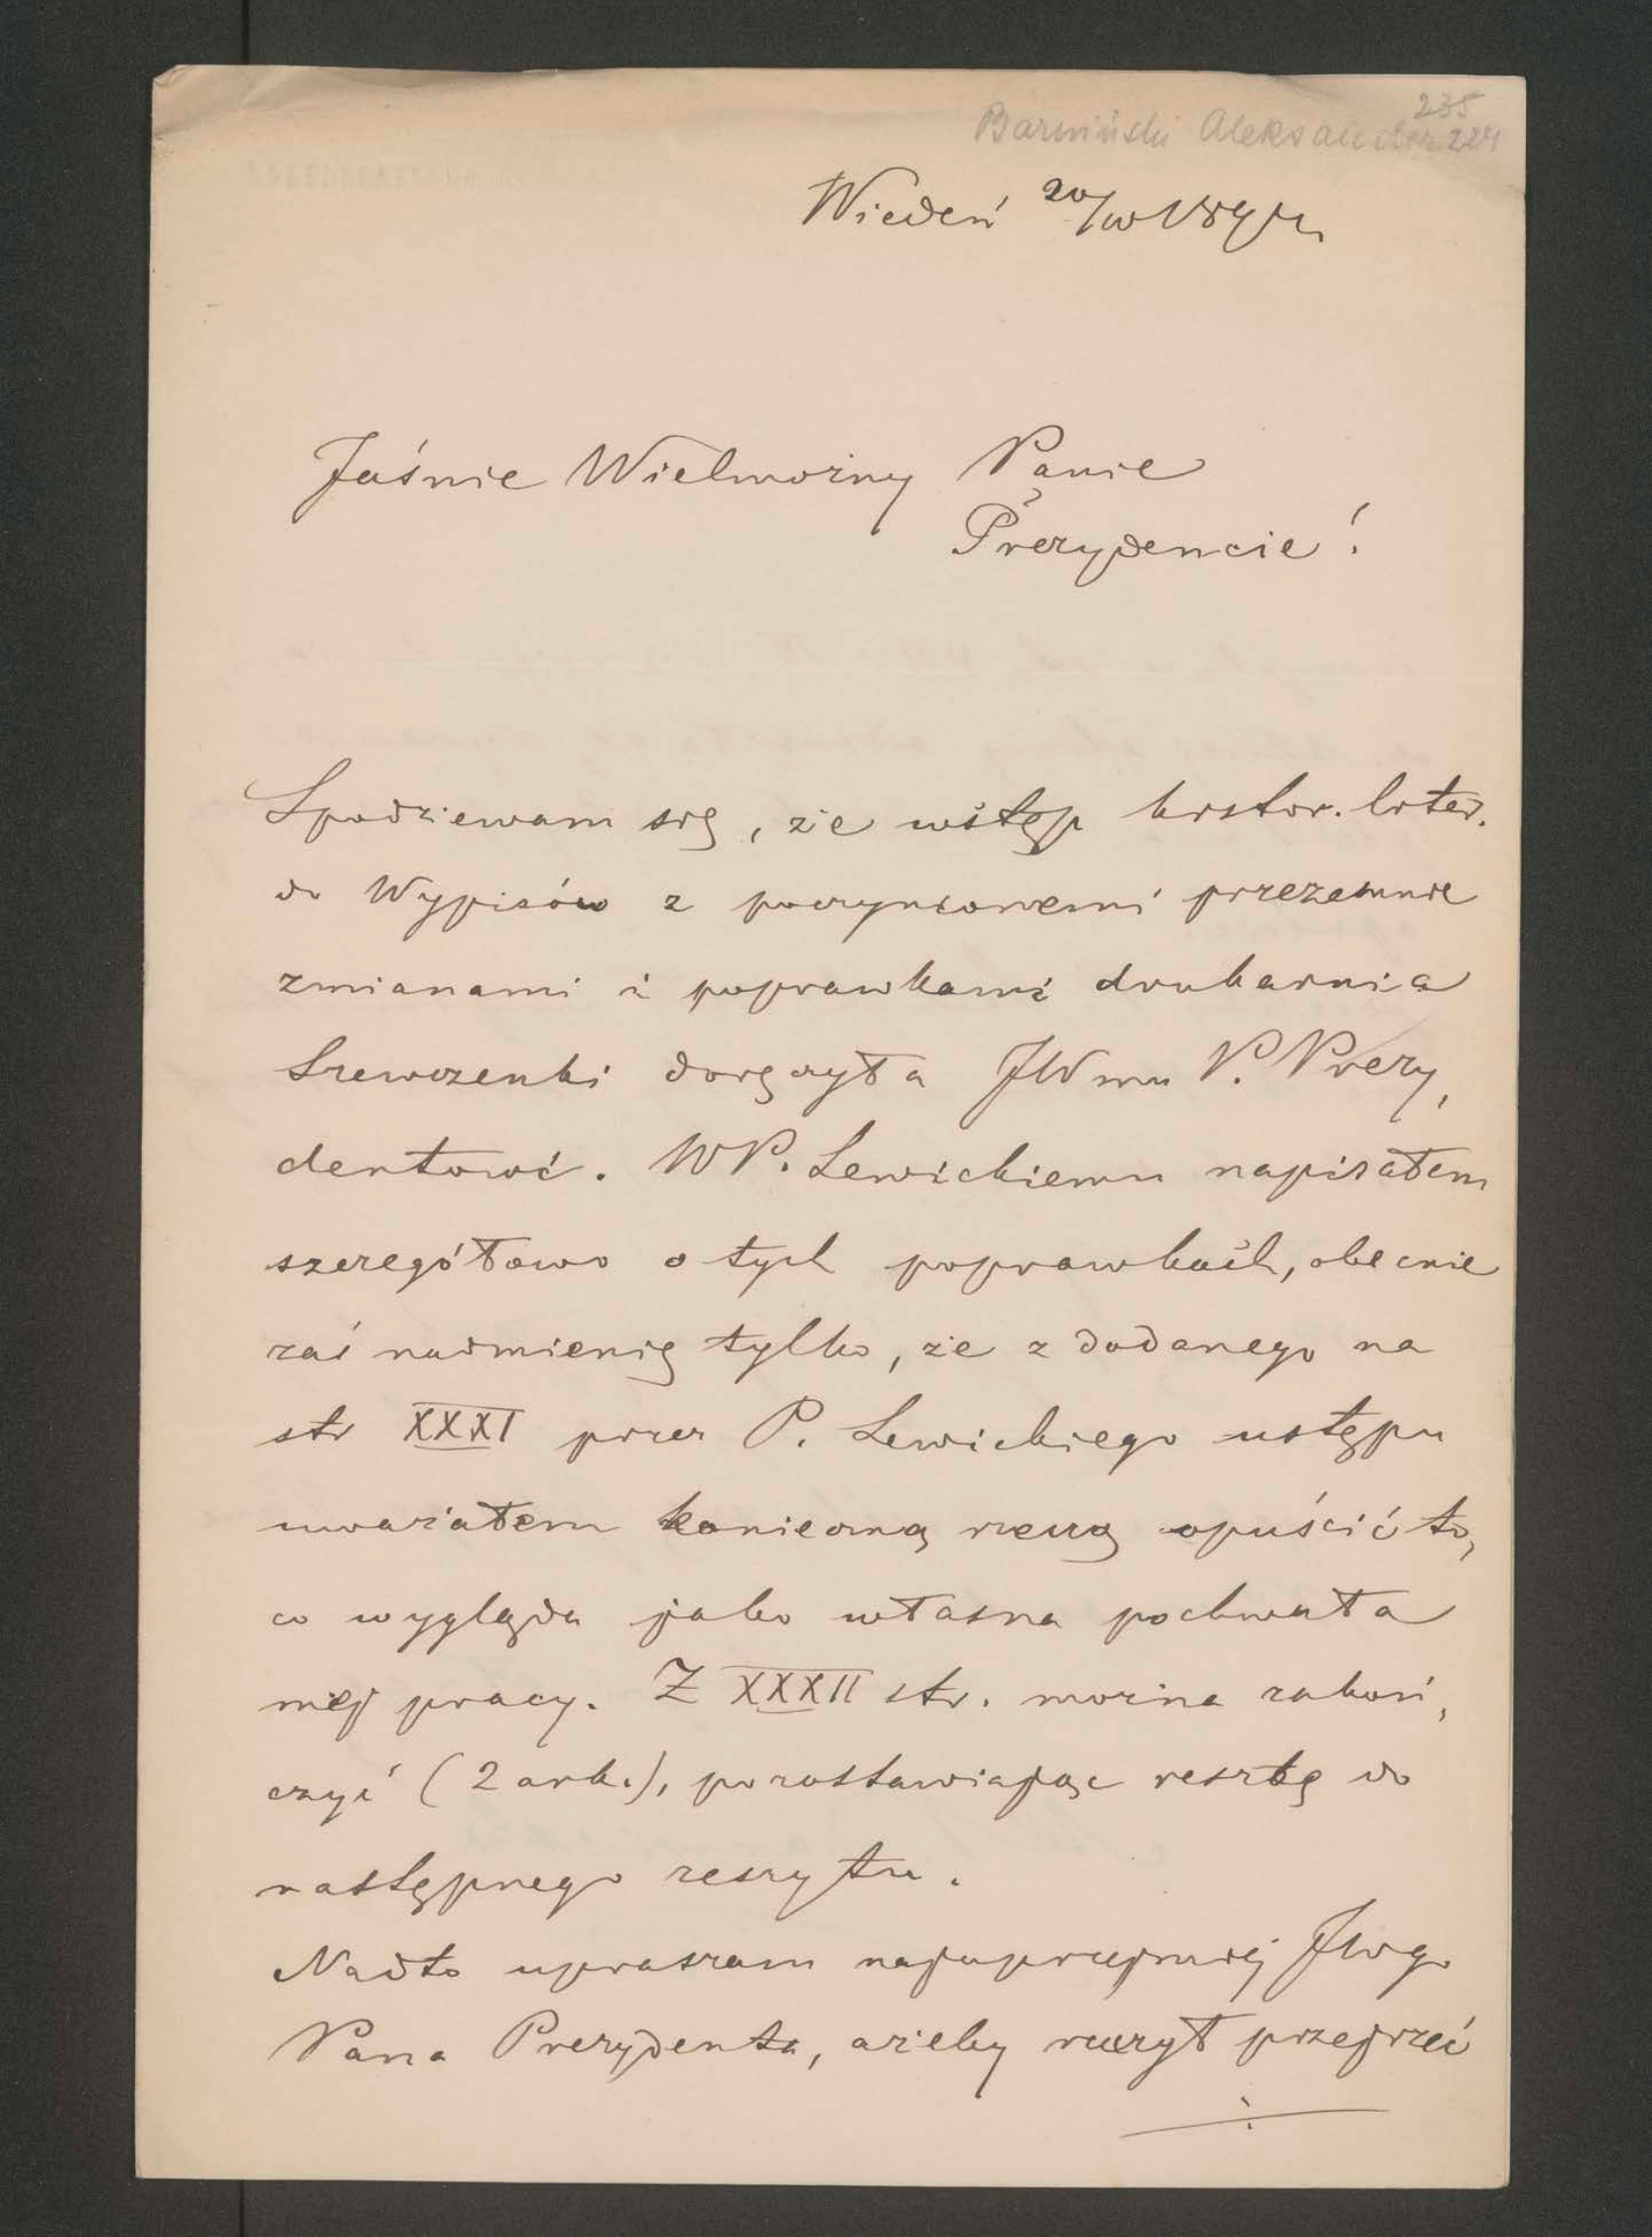 235
Barwiński Aleksander 224
Wiedeń 20/
Jaśnie Wielmożny Panie
Prezydencie!
Spodziewam się, że wstęp histor. liter.
do Wypisów z poczynionemi przezemnie
zmianami i poprawkami drukarnia
Szewczenki doręczyła JWmu P. Prezy,
dentowi. WP. Lewickiemu napisałem
szczegółowo o tych poprawkach, obecnie
zaś nadmienię tylko, że z dodanego na
str XXXI przez P. Lewickiego ustępu
uważałem konieczną rzeczą opuścić to,
co wygląda jako własna pochwała
mej pracy. Z XXXII str. można zakoń,
czyć (2 ark.), pozostawiając resztę do
następnego zeszytu.
Nadto upraszam najuprzejmiej JWgo
Pana Prezydenta, ażeby raczył przejrzeć